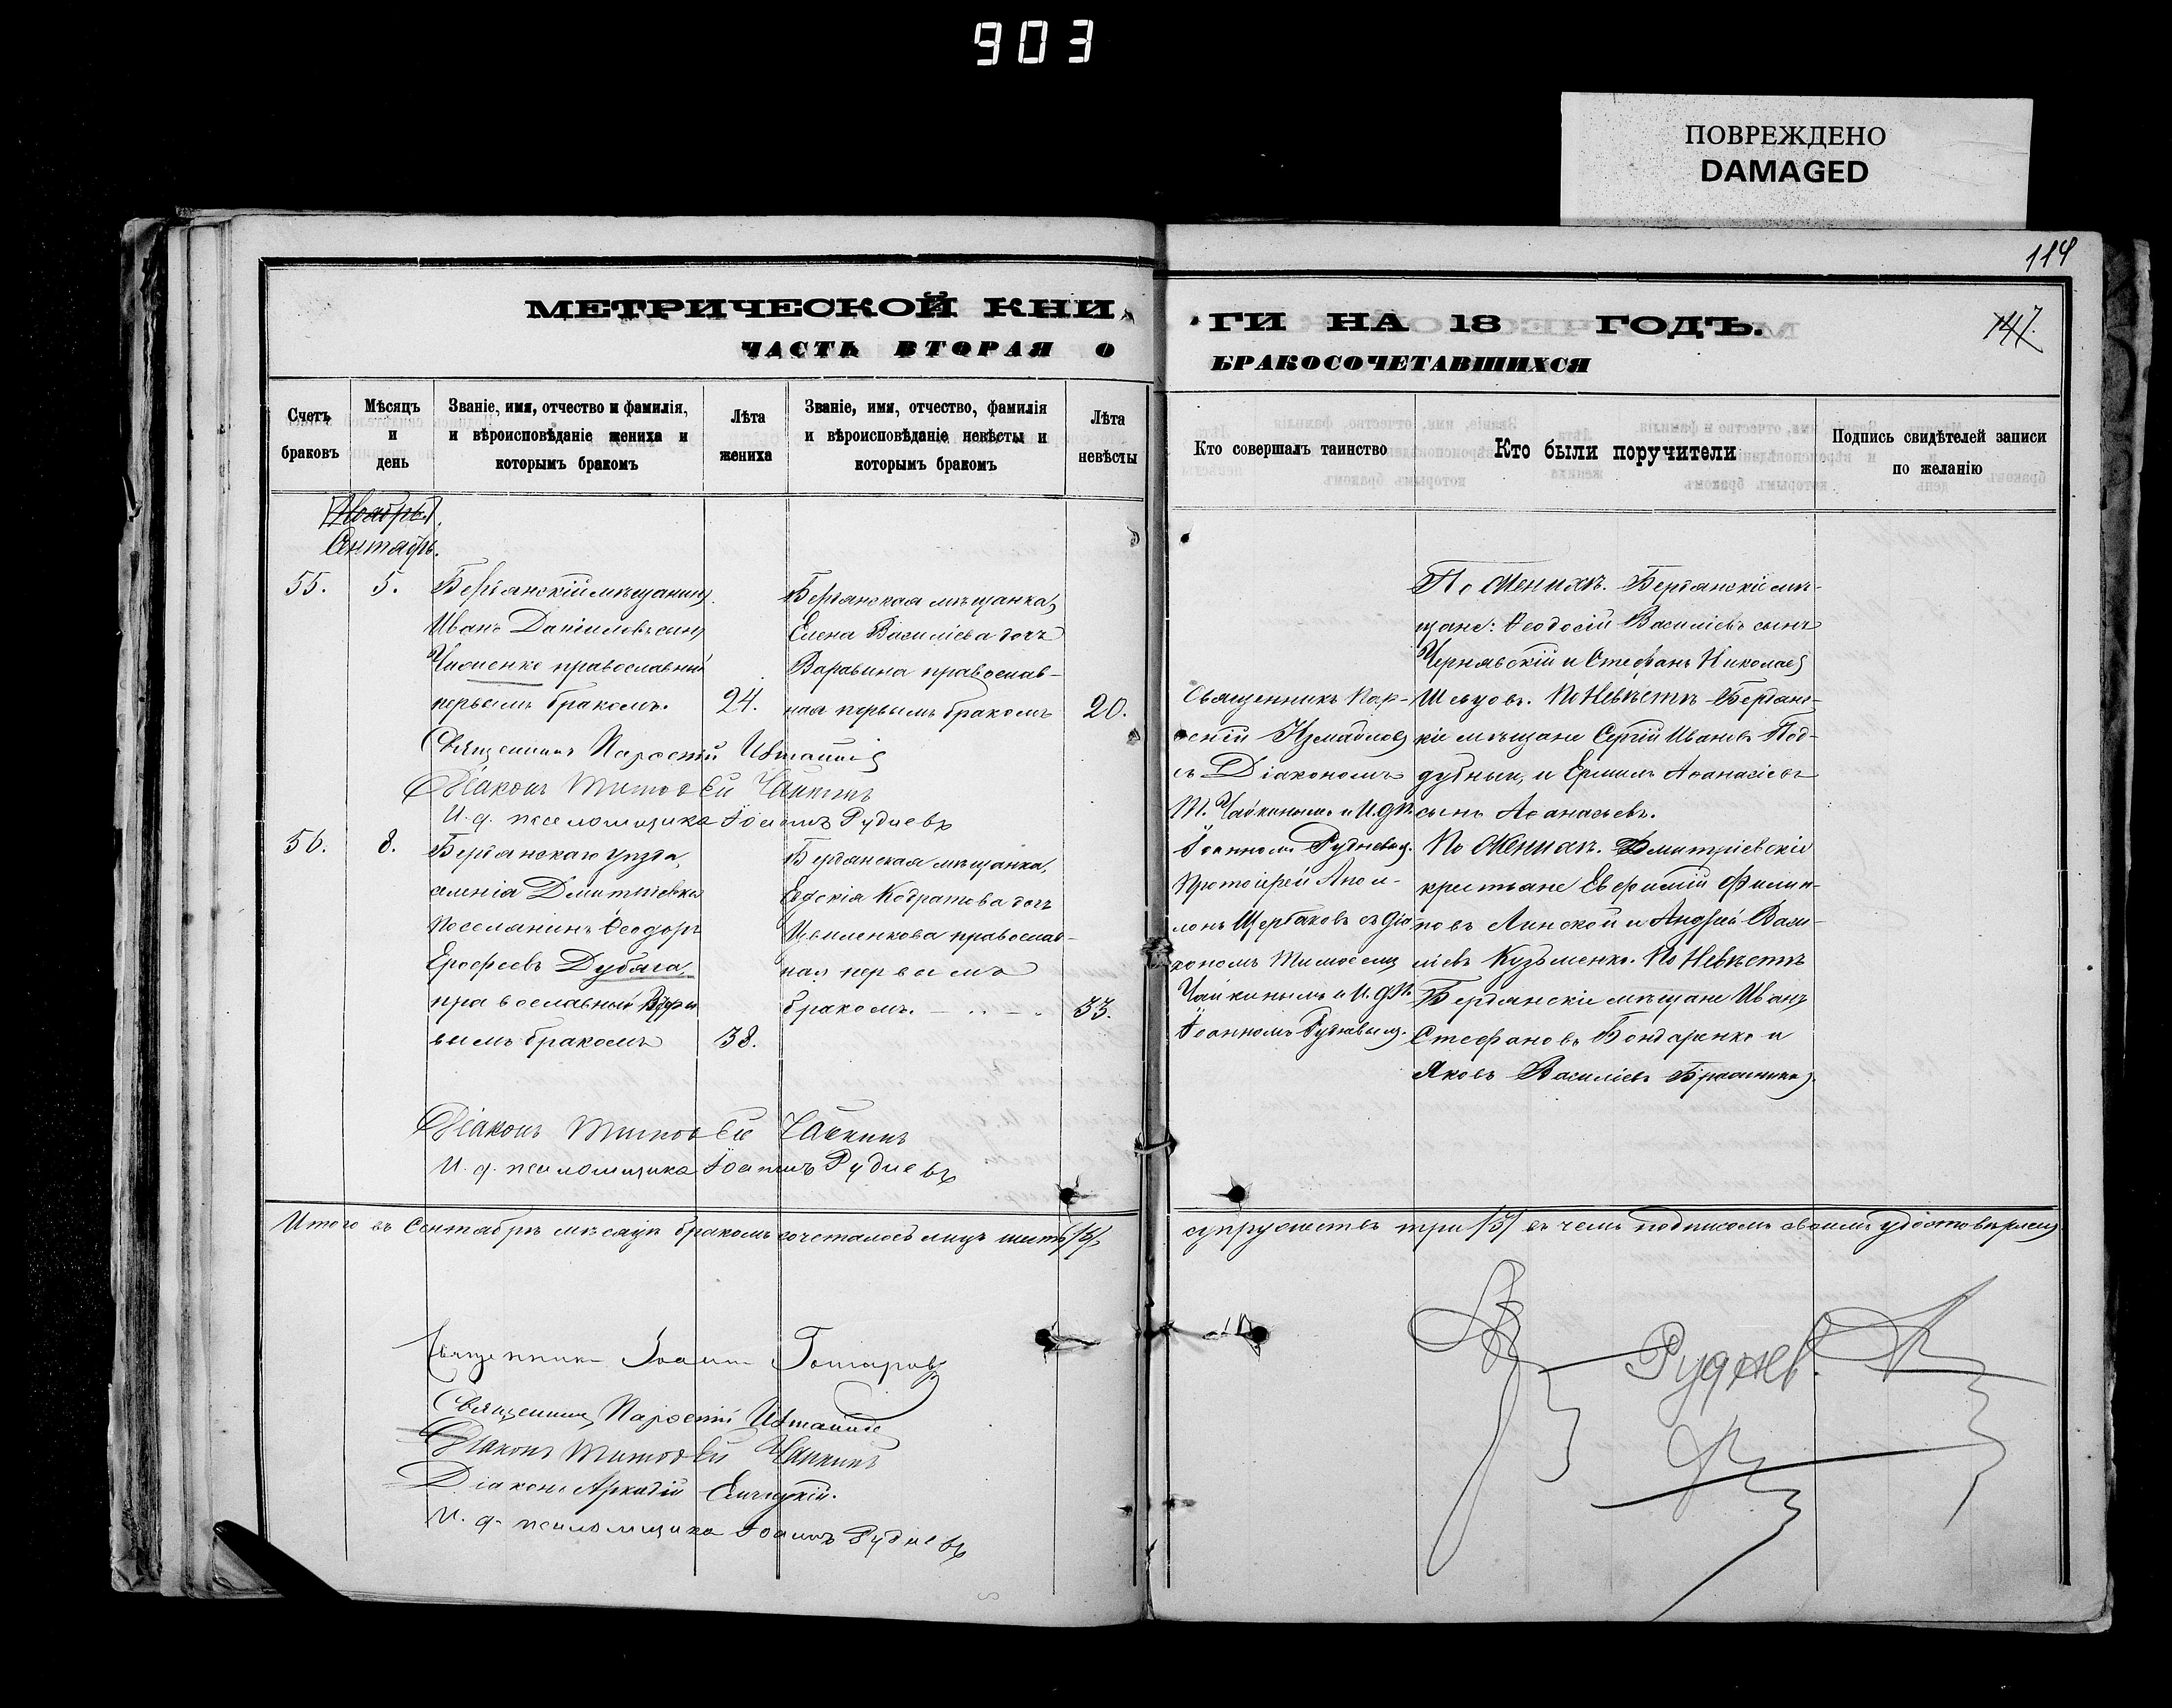 903
ПОВРЕЖДЕНО
DAMAGED
114
147.
МЕТРИЧЕСКОЙ КНИ
ГИ НА 18 ГОДЪ.
ЧАСТЬ ВТОРАЯ О
БРАКОСОЧЕТАВШИХСЯ
Счетъ браковъ
Мѣсяцъ и день
Званіе, имя, отчество и фамилія,
и вѣроисповѣданіе жениха и
которымъ бракомъ
Лѣта жениха
Званіе, имя, отчество, фамилія
и вѣроисповѣданіе невѣсты и
которымъ бракомъ
Лѣта невѣсты
Кто совершалъ таинство
Кто были поручители
Подпись свидѣтелей записи
по желанію
Ноябрь
Сентябрь.
55.
5.
Бердянскій мѣщанинъ
Иванъ Даніиловъ сынъ
православный
первымъ бракомъ.
24.
Бердянская мѣщанка
Елена Василіева дочь
Варавина православ-
ная первымъ бракомъ
20.
Священникъ
Діаконъ Тимоѳей Чайкинъ
И. д. псаломщика Іоаннъ Рудневъ
Священникъ Пар-
ѳеній
съ Діакономъ
Т. Чайкинымъ и И. д. П.
Іоанномъ Рудневымъ.
По Женихѣ. Бердянскіе мѣ-
щане: Ѳеодосій Василіевъ сынъ
Чернявскій и Стефанъ Николаевъ
Шевцовъ. По Невѣстѣ Бердянс-
кіе мѣщане Сергій Ивановъ Под-
дубный, и Ермилъ Аѳанасіевъ
сынъ Аѳанасьевъ.
56.
8.
Бердянскаго уѣзда,
селенія Дмитріевки
поселянинъ Ѳеодоръ
Ерофеевъ Дубяга,
православный
вымъ бракомъ
38.
Бердянская мѣщанка,
Евдокія Кодратова дочь
Цвиленкова православ-
ная первымъ
бракомъ.
33.
Протоіерей Апол-
лонъ Щербаковъ съ діа-
кономъ Тимоѳеемъ
Чайкинымъ и И. д. П.
Іоанномъ Рудневымъ.
По Женихѣ. Дмитріевскіе
крестьяне Евфимій Филип-
повъ Линской и Андрей Васи-
ліевъ Кузьменко. По Невѣстѣ
Бердянскіе мѣщане Иванъ
Стефановъ Бондаренко и
Яковъ Василіевъ
Діаконъ Тимоѳей Чайкинъ
И. д. псаломщика Іоаннъ Рудневъ
Итого въ Сентябрѣ мѣсяцѣ бракомъ сочеталось лицъ шесть /6/,
супружествъ три /3/ въ чемъ подписомъ своимъ удостовѣряемъ
Священникъ Іоаннъ
Священникъ
Діаконъ Тимоѳей Чайкинъ
Діаконъ Аркадій
И. д. псаломщика Іоаннъ Рудневъ
Рудневъ.